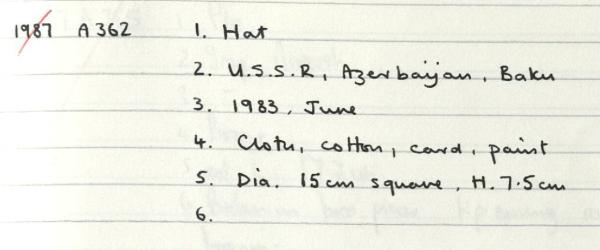 1987 A362 1. Hat
2. U.S.S.R, Azerbaijan, Baku
3. 1983, June
4. Cloth, cotton, card, paint
5. Dia. 15cm square, H. 7.5cm
6.